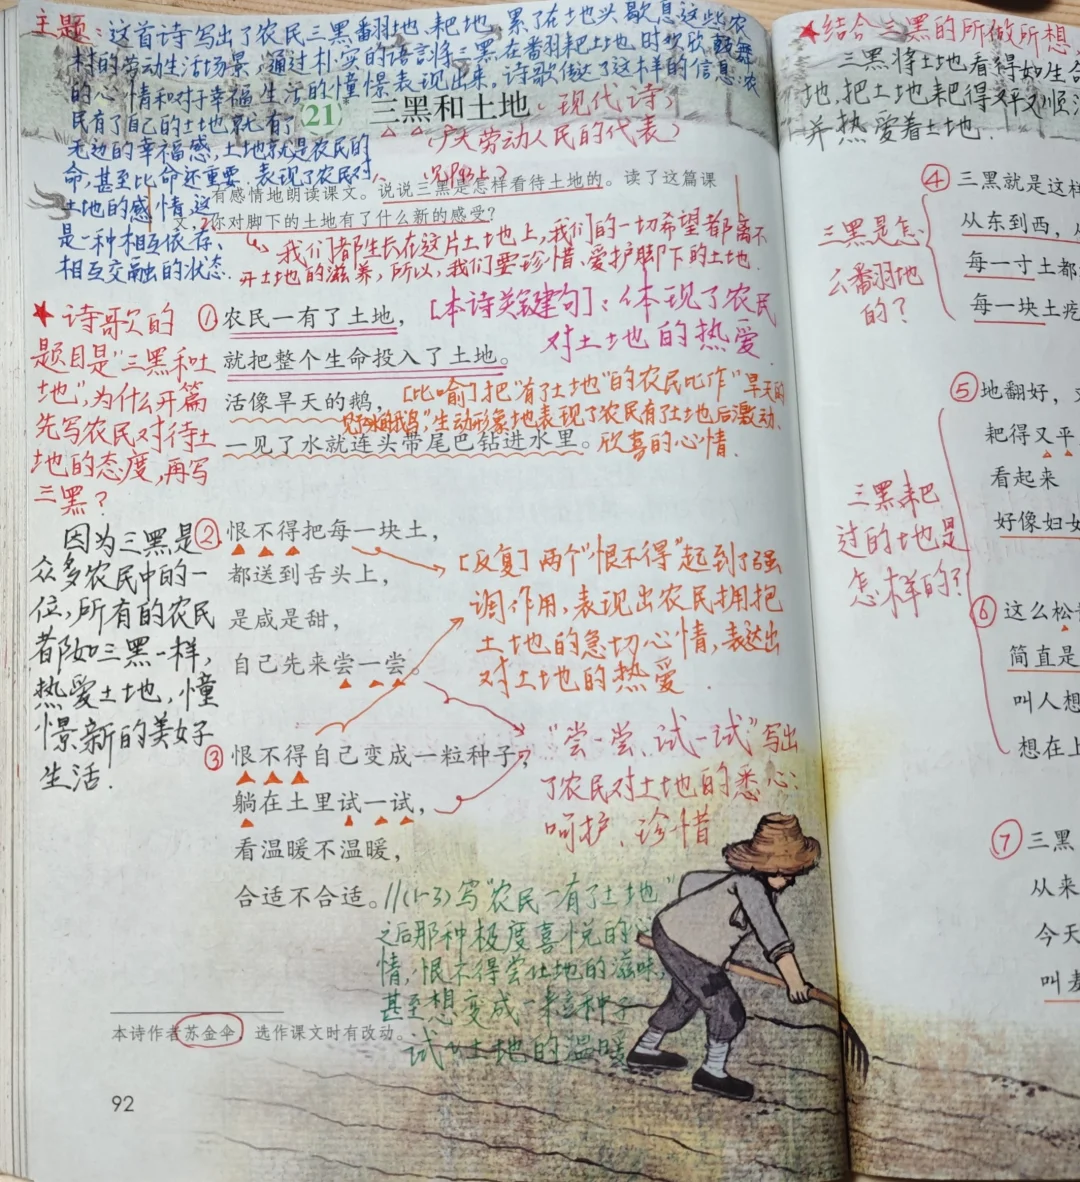 主题：这首诗写出了农民三黑翻地、耙地、累了在土地头歇息这些农
村的劳动生活场景，通过朴实的语言将三黑在番羽耙土地时欢欣鼓舞
的心情和对幸福生活的憧憬表现出来。诗歌传达了这样的信息：农
民有了自己的土地就有了
无边的幸福感，土地就是农民的
命，甚至比命还重要。表现了农民对
土地的感情这
是一种相互依存、
相互交融的状态.
21 三黑和土地（现代诗）
（广大劳动人民的代表）
（见P93上）
有感情地朗读课文。说说三黑是怎样看待土地的。读了这篇课
文，你对脚下的土地有了什么新的感受？
我们都生长在这片土地上，我们的一切希望都离不
开土地的滋养，所以，我们要珍惜、爱护脚下的土地.
★诗歌的
题目是“三黑和土
地”，为什么开篇
先写农民对待土
地的态度，再写
三黑？
因为三黑是
众多农民中的一
位，所有的农民
都如三黑一样，
热爱土地，憧
憬新的美好
生活.
①农民一有了土地，
就把整个生命投入了土地。
[本诗关键句]：体现了农民
对土地的热爱
活像旱天的鹅，
一见了水就连头带尾巴钻进水里。
[比喻]把“有了土地”的农民比作“旱天的
见了水的鹅”，生动形象地表现了农民有了土地后激动、
欣喜的心情.
②恨不得把每一块土，
都送到舌头上，
是咸是甜，
自己先来尝一尝。
[反复]两个“恨不得”起到了强
调作用，表现出农民拥抱
土地的急切心情，表达出
对土地的热爱.
③恨不得自己变成一粒种子，
躺在土里试一试，
看温暖不温暖，
合适不合适。
“尝一尝、试一试”写出
了农民对土地的悉心：
呵护、珍惜
//（1-3）写“农民一有了土地”
之后那种极度喜悦的心
情，恨不得尝土地的滋味，
甚至想变成一粒种子
试一试土地的温暖
本诗作者苏金伞，选作课文时有改动。
92
★结合三黑的所做所想，
三黑将土地看得如生命
地，把土地耙得又平又顺
并热爱着土地.
④三黑就是这样
从东到西，
每一寸土都
每一块土疙
三黑是怎
么翻地
的？
⑤地翻好，
耙得又平
看起来
好像妇女
三黑耙
过的地是
怎样的？
⑥这么松
简直是
叫人想
想在上
⑦三黑
从来
今天
叫麦